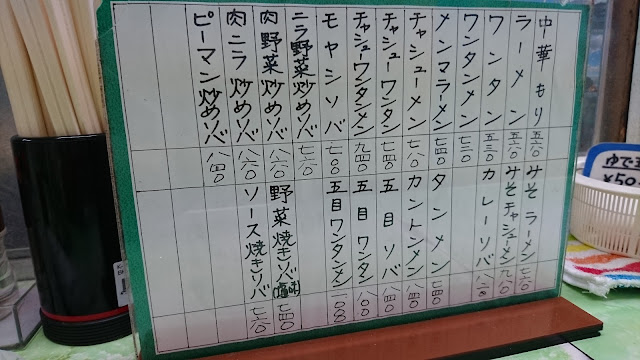 中華もり 五六〇
ラーメン 五六〇
ワンタン 五三〇
ワンタンメン 七三〇
メンマラーメン 七四〇
チャシューメン 七八〇
チャシューワンタン 七四〇
チャシューワンタンメン 九四〇
モヤシソバ 七〇〇
ニラ野菜炒めソバ 七六〇
肉野菜炒めソバ 八六〇
肉ニラ炒めソバ 八六〇
ピーマン炒めソバ 八四〇
みそラーメン 七六〇
みそチャシューメン
カレーソバ 八二〇
タンメン 七四〇
カントンメン 八四〇
五目ソバ 八四〇
五目ワンタン 八〇〇
五目ワンタンメン
野菜焼きソバ(塩味) 七四〇
ソース焼きソバ 七六〇
ゆで
¥50